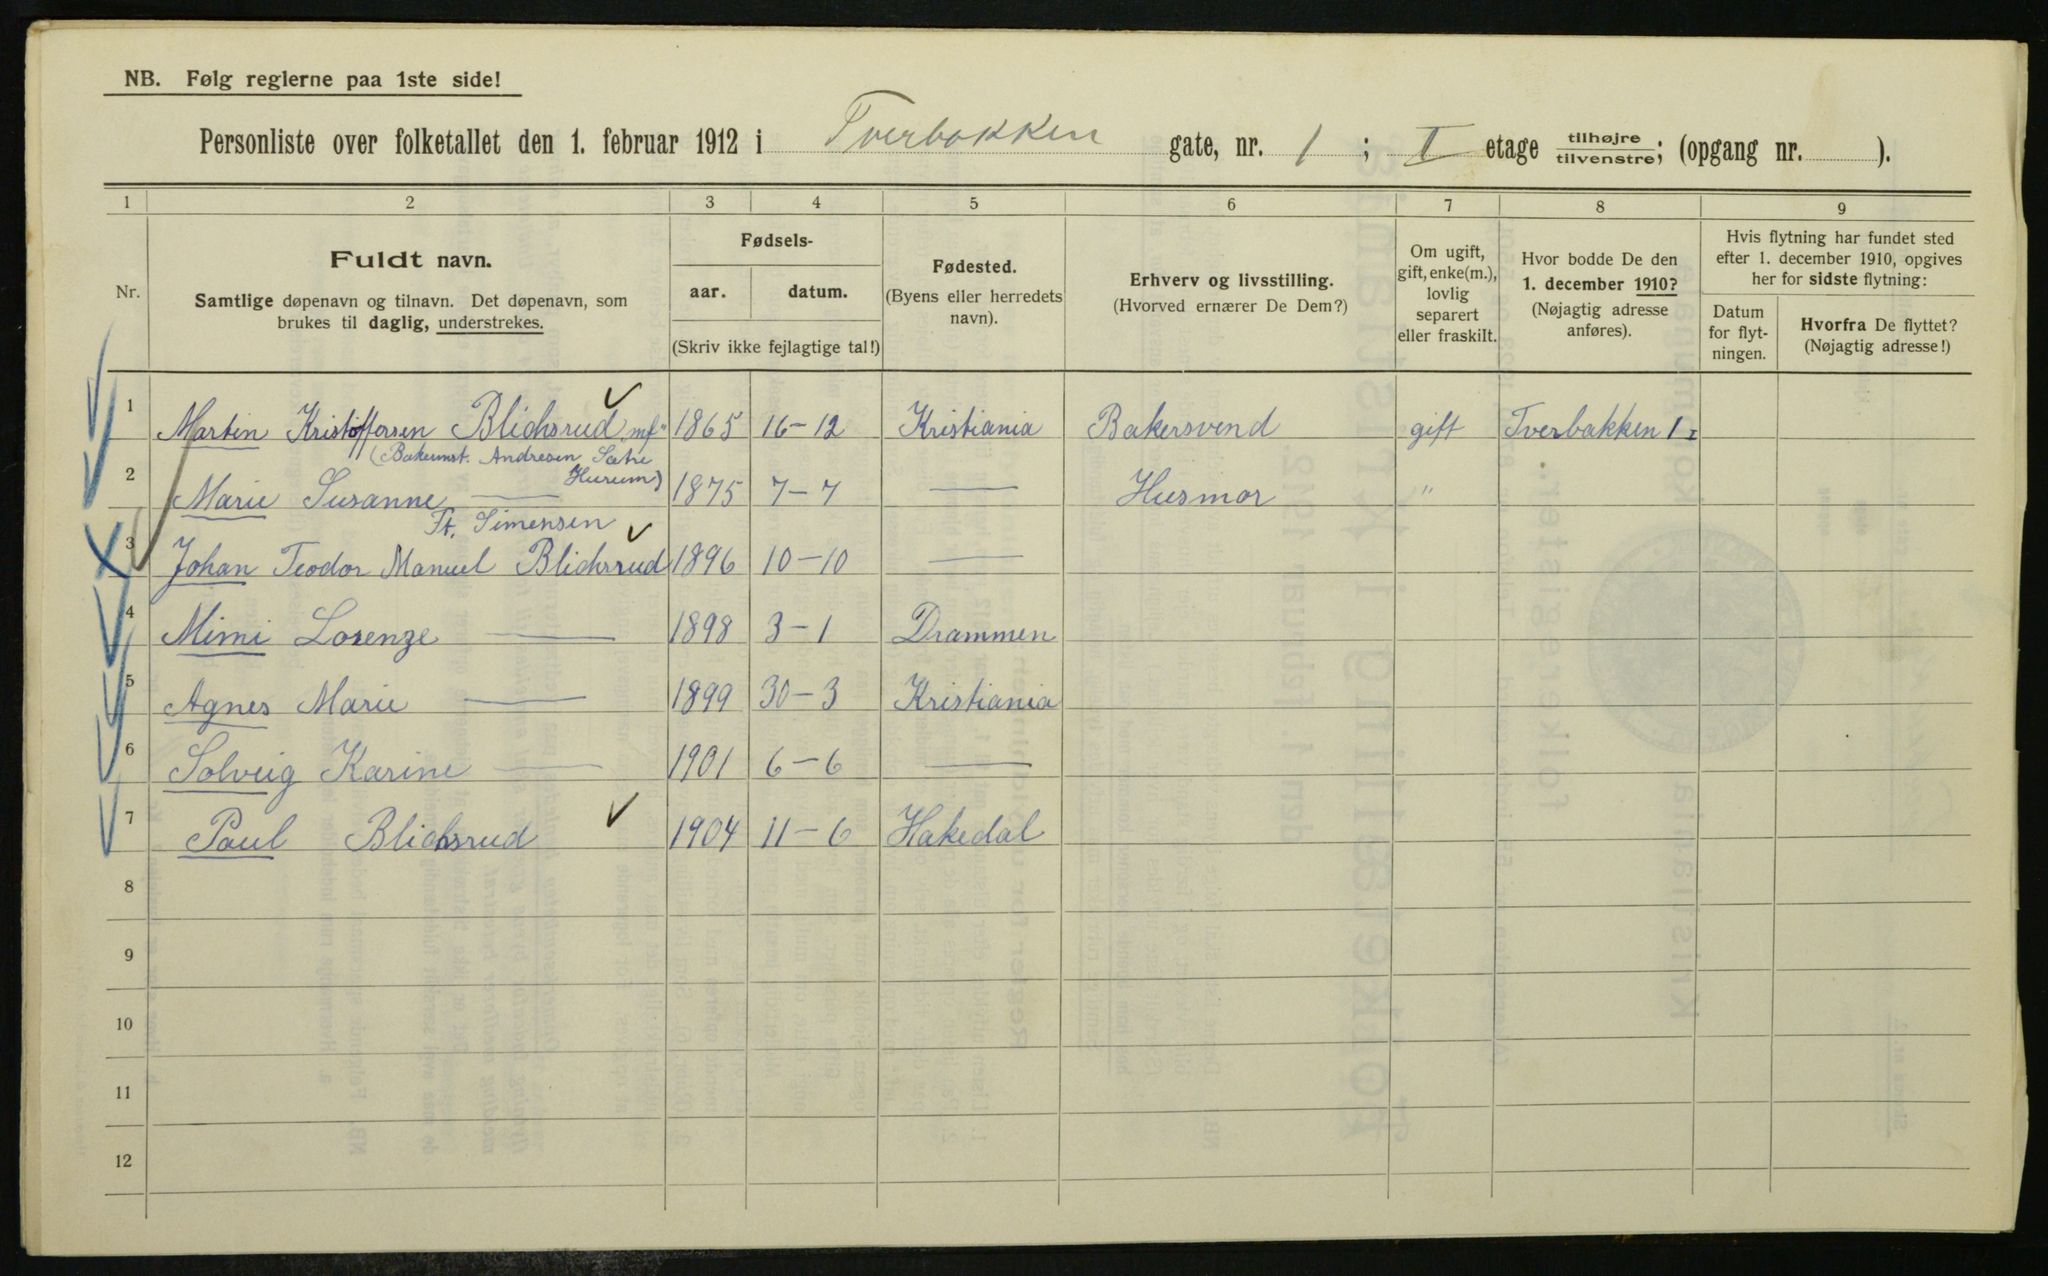 NB. Følg reglerne paa 1ste side!
Personliste over folketallet den 1. februar 1912 i Tverbakken gate, nr. 1 ; I etage tilhøjre/tilvenstre; (opgang nr. ).
1 2 3 4 5 6 7 8 9
Nr.
Fuldt navn.
Samtlige døpenavn og tilnavn. Det døpenavn, som
brukes til daglig, understrekes.
Fødsels-
aar. datum.
(Skriv ikke fejlagtige tal!)
Fødested.
(Byens eller herredets
navn).
Erhverv og livsstilling.
(Hvorved ernærer De Dem?)
Om ugift,
gift, enke(m.),
lovlig
separert
eller fraskilt.
Hvor bodde De den
1. december 1910?
(Nøjagtig adresse
anføres).
Hvis flytning har fundet sted
efter 1. december 1910, opgives
her for sidste flytning:
Datum
for flyt-
ningen.
Hvorfra De flyttet?
(Nøjagtig adresse!)
1 Martin Kristoffersen Blichsrud mf" 1865 16-12 Kristiania Bakersvend gift Tverbakken 1 I
(Bakermst. Andresen Sætre
Hurum)
2 Marie Susanne — 1875 7-7 — Husmor "
Simensen
3 Johan Teodor Manuel Blichsrud 1896 10-10 —
4 Mimi Lorenze — 1898 3-1 Drammen
5 Agnes Marie — 1899 30-3 Kristiania
6 Solveig Karine — 1901 6-6 —
7 Paul Blichsrud 1904 11-6 Hakedal
8
9
10
11
12